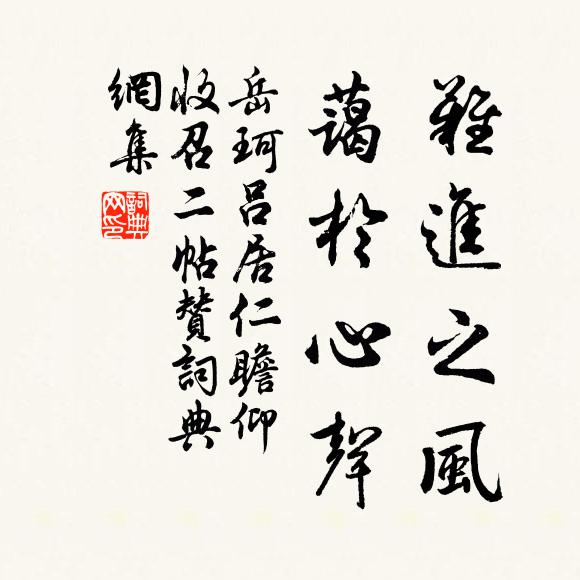 難進之風
藹於心聲
岳珂呂居仁瞻仰
收召二帖贊詞典
網集
詞典網印